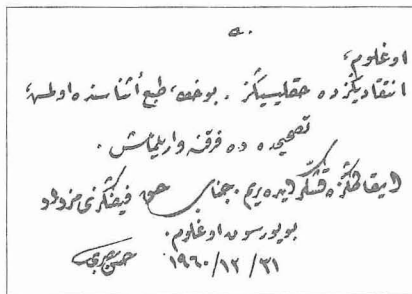 اوغلوم،
انتقاديڭزده حقليسيڭز . بو خطا، طبع أثناسنده اولمش،
تصحيحده ده فرقنه واريلمامش .
ايقاظڭزه تشكر ايده ريم . جناب حق فيضڭزى مزداد
بويورسون اوغلوم .
١٩٦٠/١٢/٣١
حسن بصرى